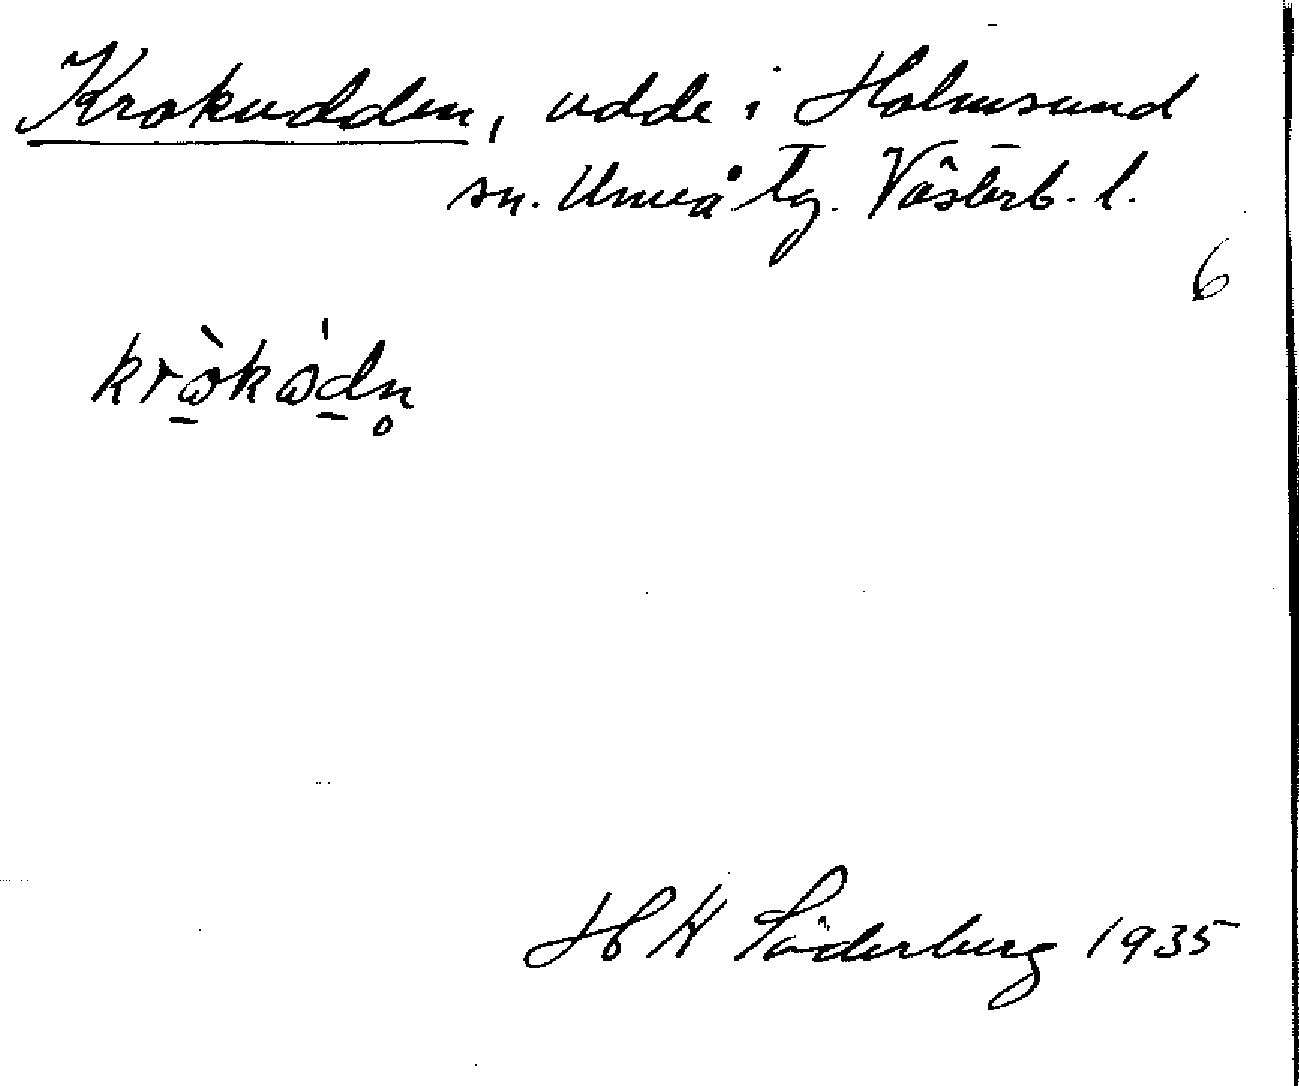 Krokudden, udde i Holmsund
sn. Umeå tg. Västerb. l.
6
H H Söderberg 1935